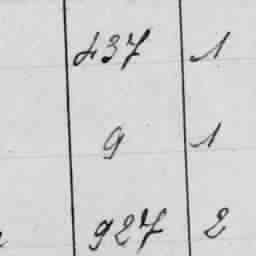 437 1
9 1
927 2